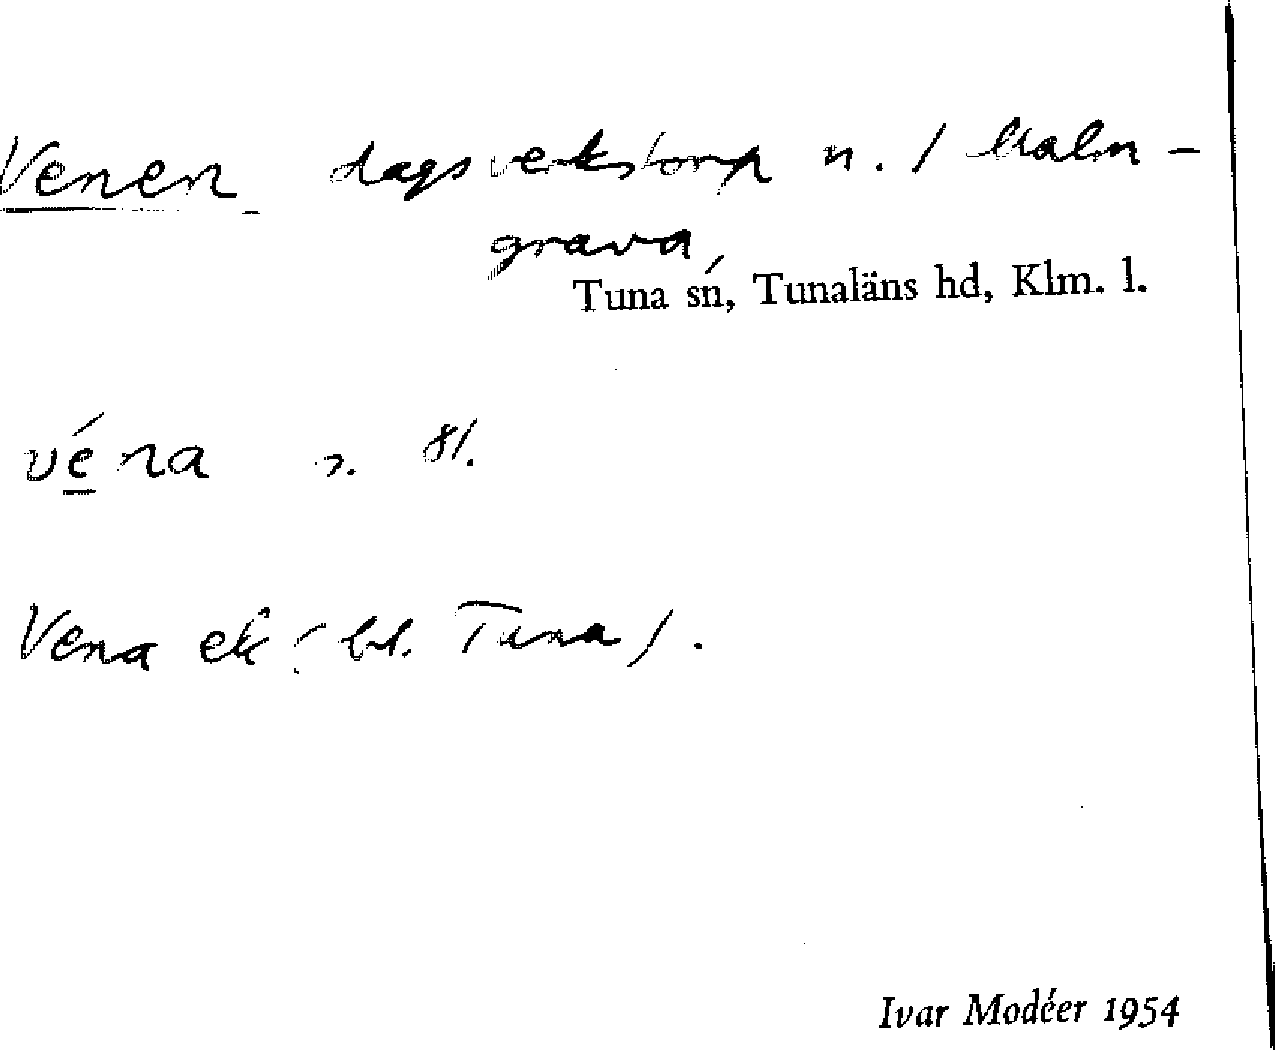 Venen dagsverkstorp n. / Malm-
grava,
Tuna sn, Tunaläns hd, Klm. l.
véna
Vena ek (bl. Tuna).
Ivar Modéer 1954